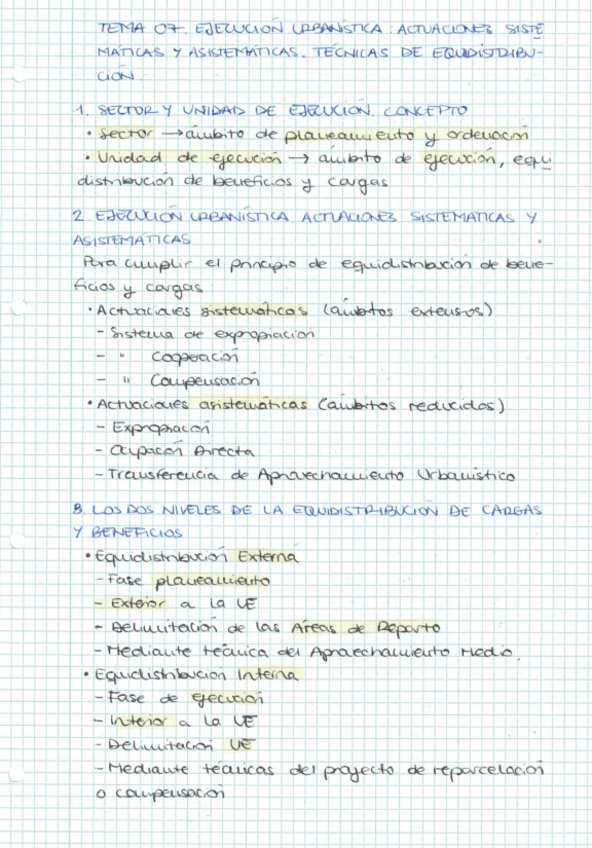 TEMA 07. EJECUCIÓN URBANÍSTICA: ACTUACIONES SISTE
MÁTICAS Y ASISTEMÁTICAS. TÉCNICAS DE EQUIDISTRIBU-
CIÓN.
1. SECTOR Y UNIDAD DE EJECUCIÓN. CONCEPTO
• Sector → ámbito de planeamiento y ordenación
• Unidad de ejecución → ámbito de ejecución, equi
distribución de beneficios y cargas
2. EJECUCIÓN URBANÍSTICA ACTUACIONES SISTEMÁTICAS Y
ASISTEMÁTICAS
Para cumplir el principio de equidistribución de bene-
ficios y cargas
• Actuaciones sistemáticas (ámbitos extensos)
- Sistema de expropiación
- " Cooperación
- " Compensación
• Actuaciones asistemáticas (ámbitos reducidos)
- Expropiación
- Ocupación Directa
- Transferencia de Aprovechamiento Urbanístico
3. LOS DOS NIVELES DE LA EQUIDISTRIBUCIÓN DE CARGAS
Y BENEFICIOS
• Equidistribución Externa
- Fase planeamiento
- Exterior a la UE
- Delimitación de las Áreas de Reparto
- Mediante técnica del Aprovechamiento Medio.
• Equidistribución Interna
- Fase de ejecución
- Interior a la UE
- Delimitación UE
- Mediante técnicas del proyecto de reparcelación
o compensación